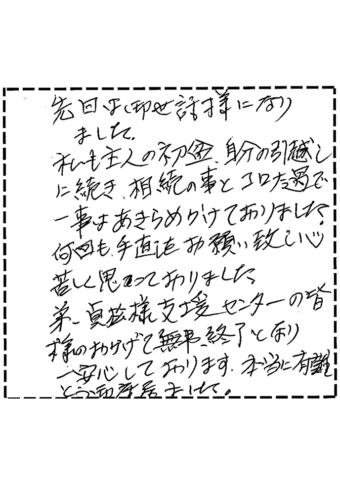 先日は御世話様になり
ました。
私も主人の初盆、自分の引越し
に続き、相続の事とコロナ過で
一事はあきらめかけておりました。
何回も手直しをお願い致し心
苦しく思っておりました
弟、貞弦様支援センターの皆
様のおかげで無事終了となり
一安心しております。本当に有難
とう御座居ました。